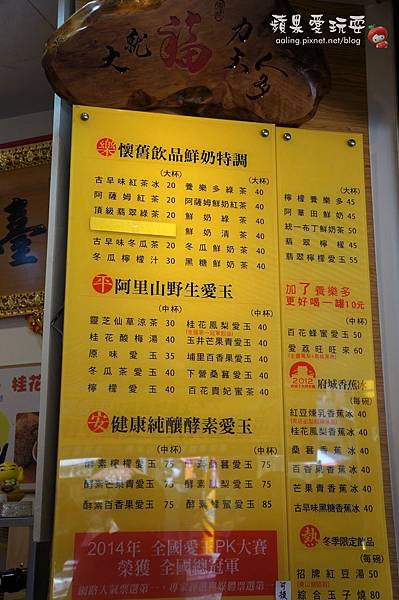 蘋果愛玩耍
aaling.pixnet.net/blog
福
大
樂 懷舊飲品鮮奶特調
(大杯)
古早味紅茶冰 20
阿薩姆紅茶 20
頂級翡翠綠茶 20
古早味冬瓜茶 20
冬瓜檸檬汁 30
(大杯)
養樂多綠茶 40
阿薩姆鮮奶紅茶 40
鮮奶綠茶 40
鮮奶清茶 40
冬瓜鮮奶茶 40
黑糖鮮奶茶 40
平 阿里山野生愛玉
(中杯)
靈芝仙草涼茶 30
桂花酸梅湯 40
原味愛玉 35
冬瓜茶愛玉 40
檸檬愛玉 40
(中杯)
桂花鳳梨愛玉 40
玉井芒果青愛玉 40
埔里百香果愛玉 40
下營桑葚愛玉 40
百花貴妃蜜茶 40
安 健康純釀酵素愛玉
(中杯)
酵素檸檬愛玉 75
酵素芒果青愛玉 75
酵素百香果愛玉 75
(中杯)
酵素桑葚愛玉 75
酵素鳳梨愛玉 85
酵素蜂蜜愛玉 85
2014年 全國愛玉PK大賽
榮獲 全國總冠軍
(大杯)
檸檬養樂多 45
阿華田鮮奶 45
統一布丁鮮奶茶 50
翡翠檸檬 45
翡翠檸檬愛玉 55
加了養樂多
更好喝一罐10元
(中杯)
百花蜂蜜愛玉 50
愛荔旺旺來 60
2012
府城香蕉冰
(每碗)
紅豆煉乳香蕉冰 40
桂花鳳梨香蕉冰 40
桑葚香蕉冰 40
百香果香蕉冰 40
芒果青香蕉冰 40
古早味黑糖香蕉冰 40
熱 冬季限定飲品
(每碗)
招牌紅豆湯 50
綜合玉子燒 80
臺
桂花